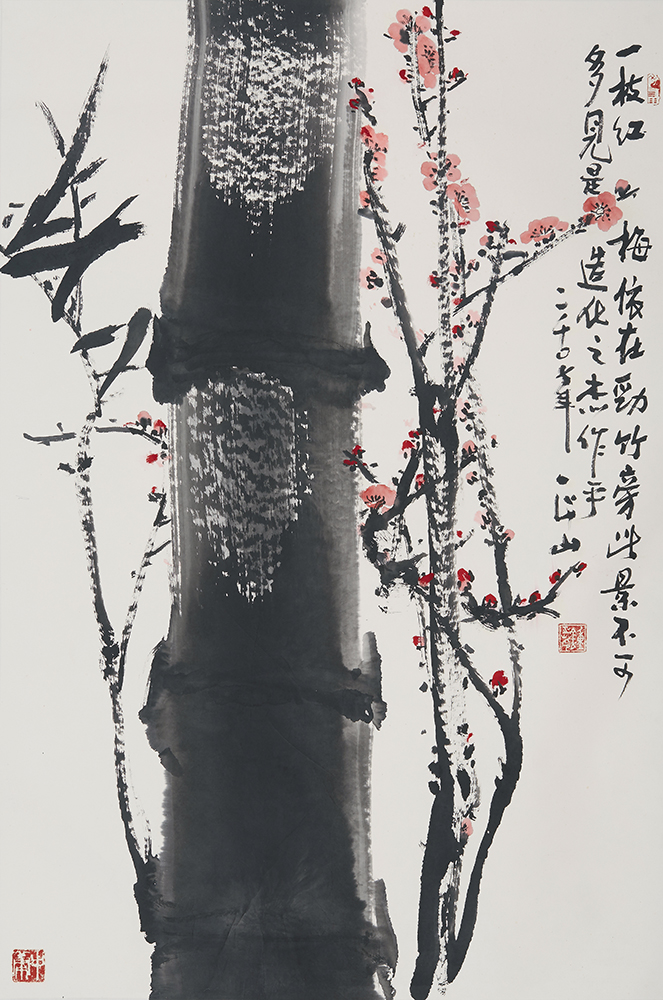 一枝红山梅依在劲竹旁此景不可
多见是造化之杰作乎
二千〇七年 正山